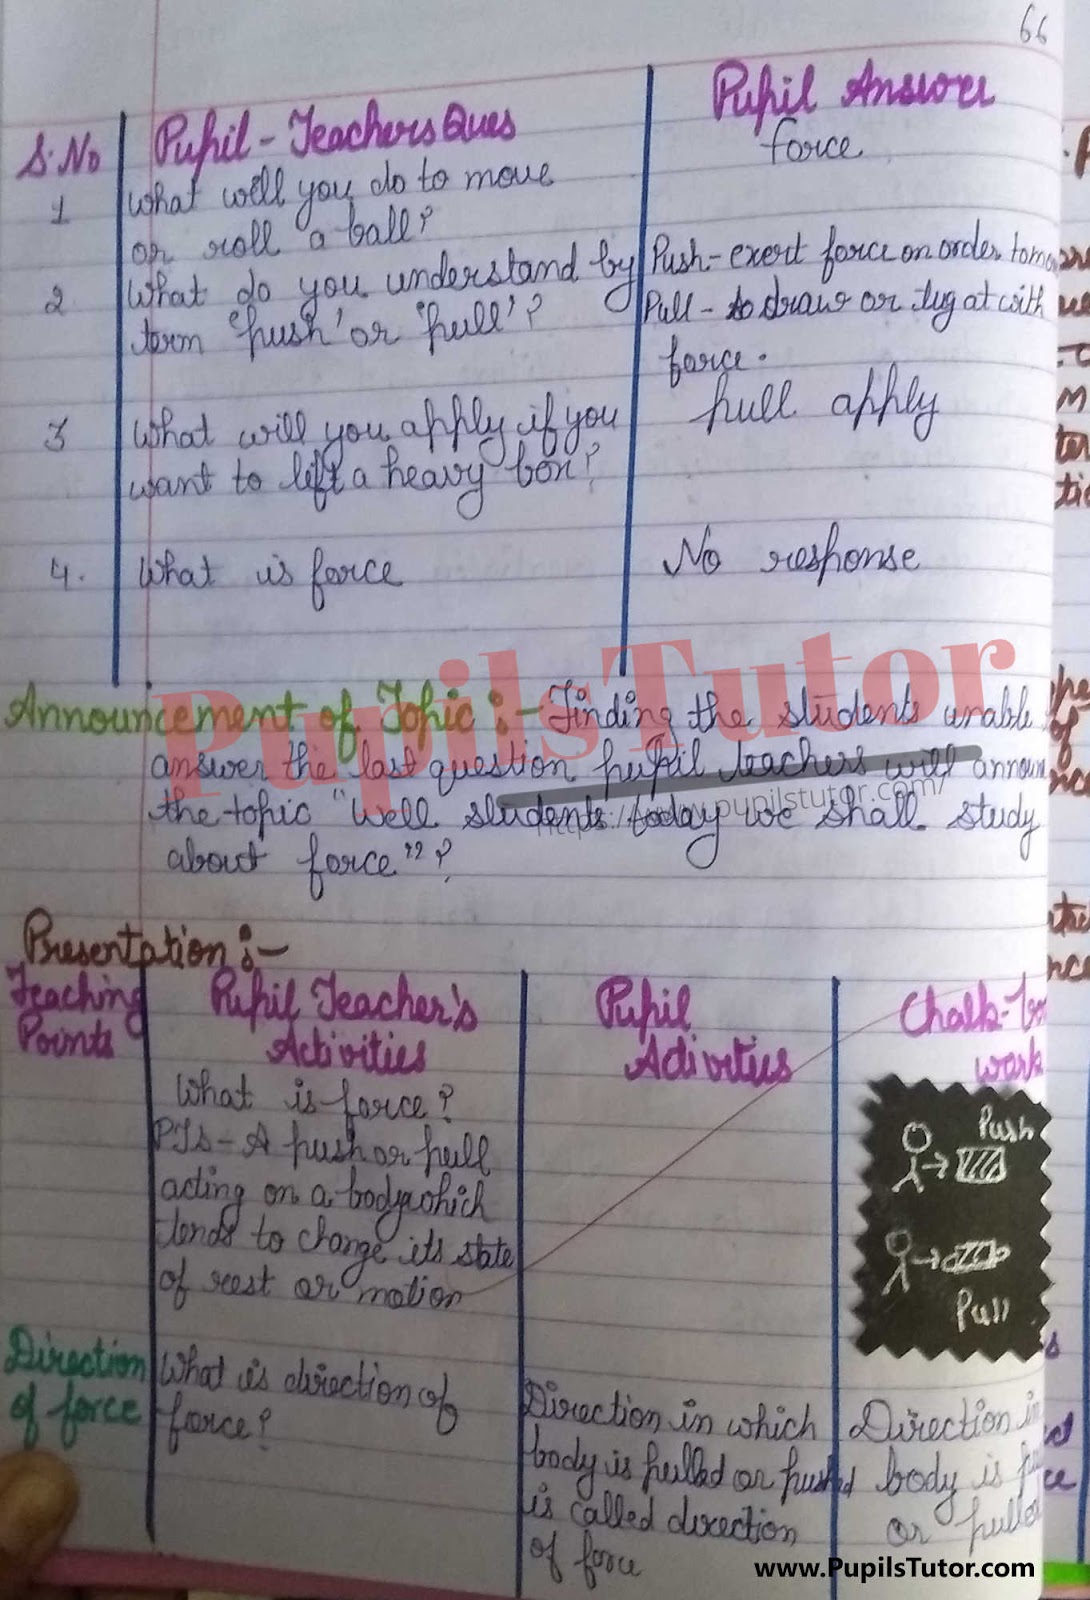 66
S.No Pupil-Teachers Ques Pupil Answer
1 What will you do to move force
or roll a ball?
2 What do you understand by Push- exert force on order to
term 'push' or 'pull'? Pull - to draw or tug at with
force.
3 What will you apply if you pull apply
want to left a heavy box?
4. What is force No response
PupilsTutor
Announcement of Topic :- Finding the students unable
answer the last question pupil teachers will
https://www.pupilstutor.com/
the topic "Well students today we shall study
about force"?
Presentation :-
Teaching Points
Pupil Teacher's Activities
Pupil Activities
Chalk- work
What is force?
PTS- A push or pull
acting on a body which
tends to change its state
of rest or motion
Push
Pull
Direction of force
What is direction of
force?
Direction in which
body is pulled or pushed
is called direction
of force
Direction in
body is
or pulled
www.PupilsTutor.com